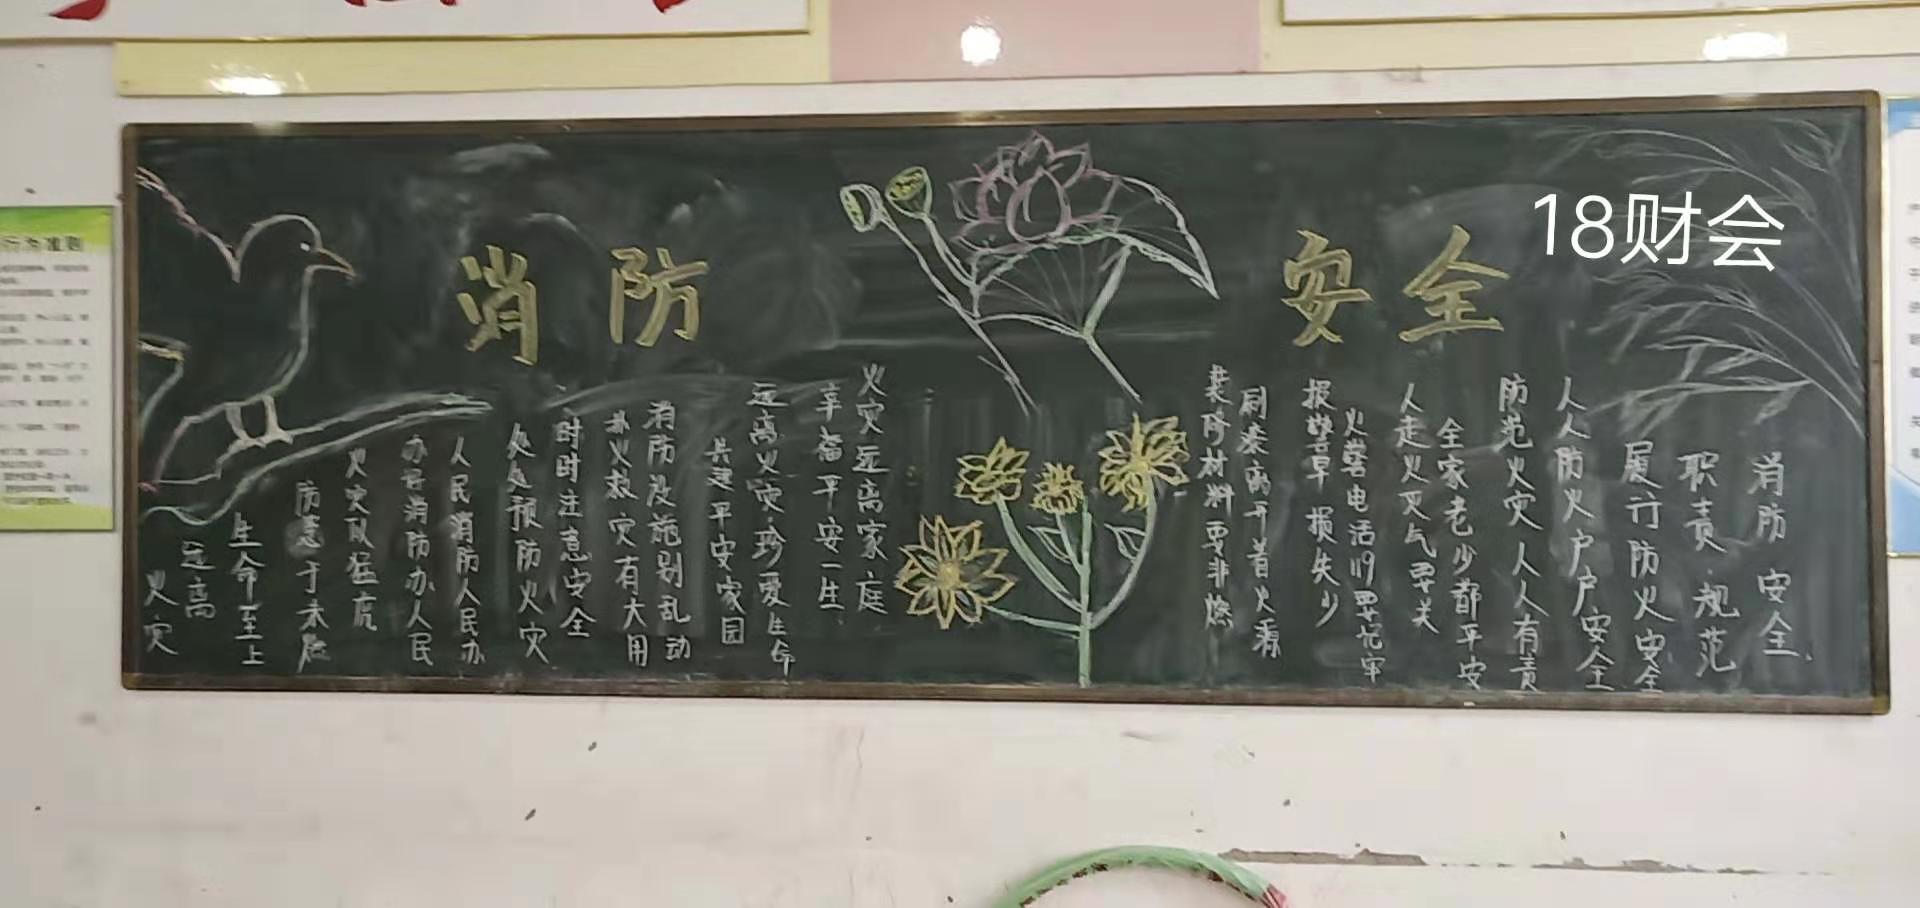 消防安全
18财会
消防安全
职责规范
履行防火安全
人人防火户户安全
防范火灾人人有责
全家老少都平安
人走火灭气要关
火警电话119要记牢
报警早损失少
刷漆离开着火源
装修材料要非燃
火灾远离家庭
幸福平安一生
远离火灾珍爱生命
共建平安家园
消防设施别乱动
救火救灾有大用
时时注意安全
处处预防火灾
人民消防人民办
办好消防办人民
火灾似猛虎
防患于未燃
生命至上
远离
火灾
行为准则